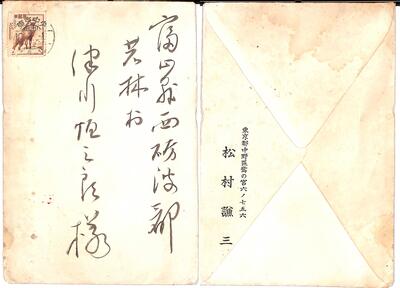 富山縣西砺波郡
若林村
津川 様
東京都中野區鷺の宮六ノ七五六
松村謙三